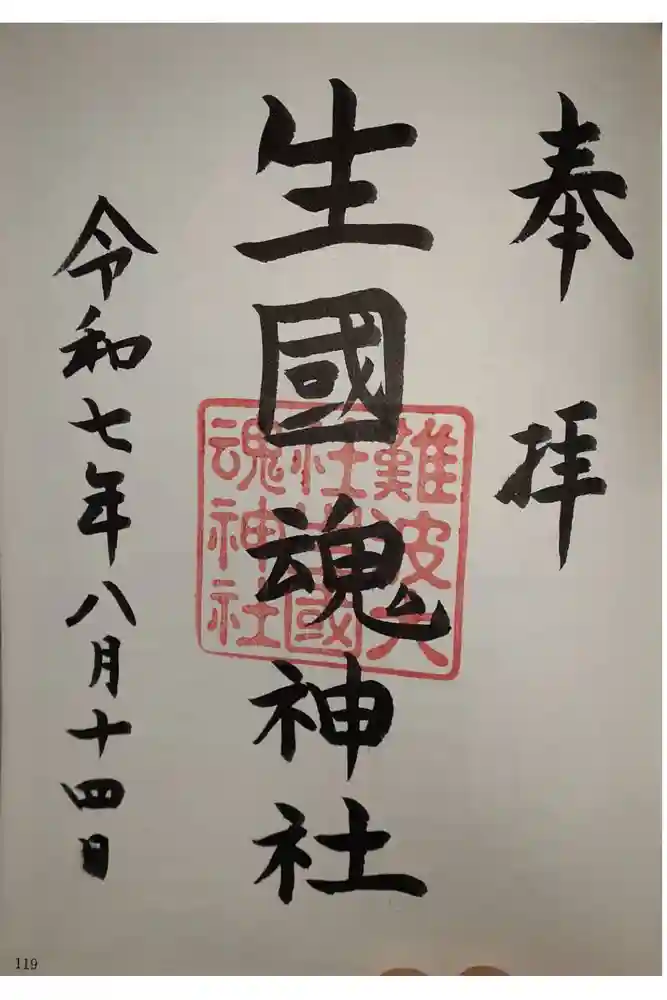 奉拝
生國魂神社
難波大
社生國
魂神社
令和七年八月十四日
119